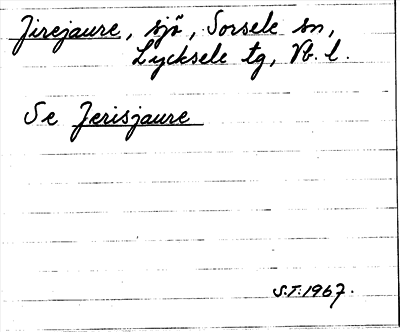 Jirejaure, sjö, Sorsele sn,
Lycksele tg, Vb. l.
Se Jerisjaure
S.T. 1967.